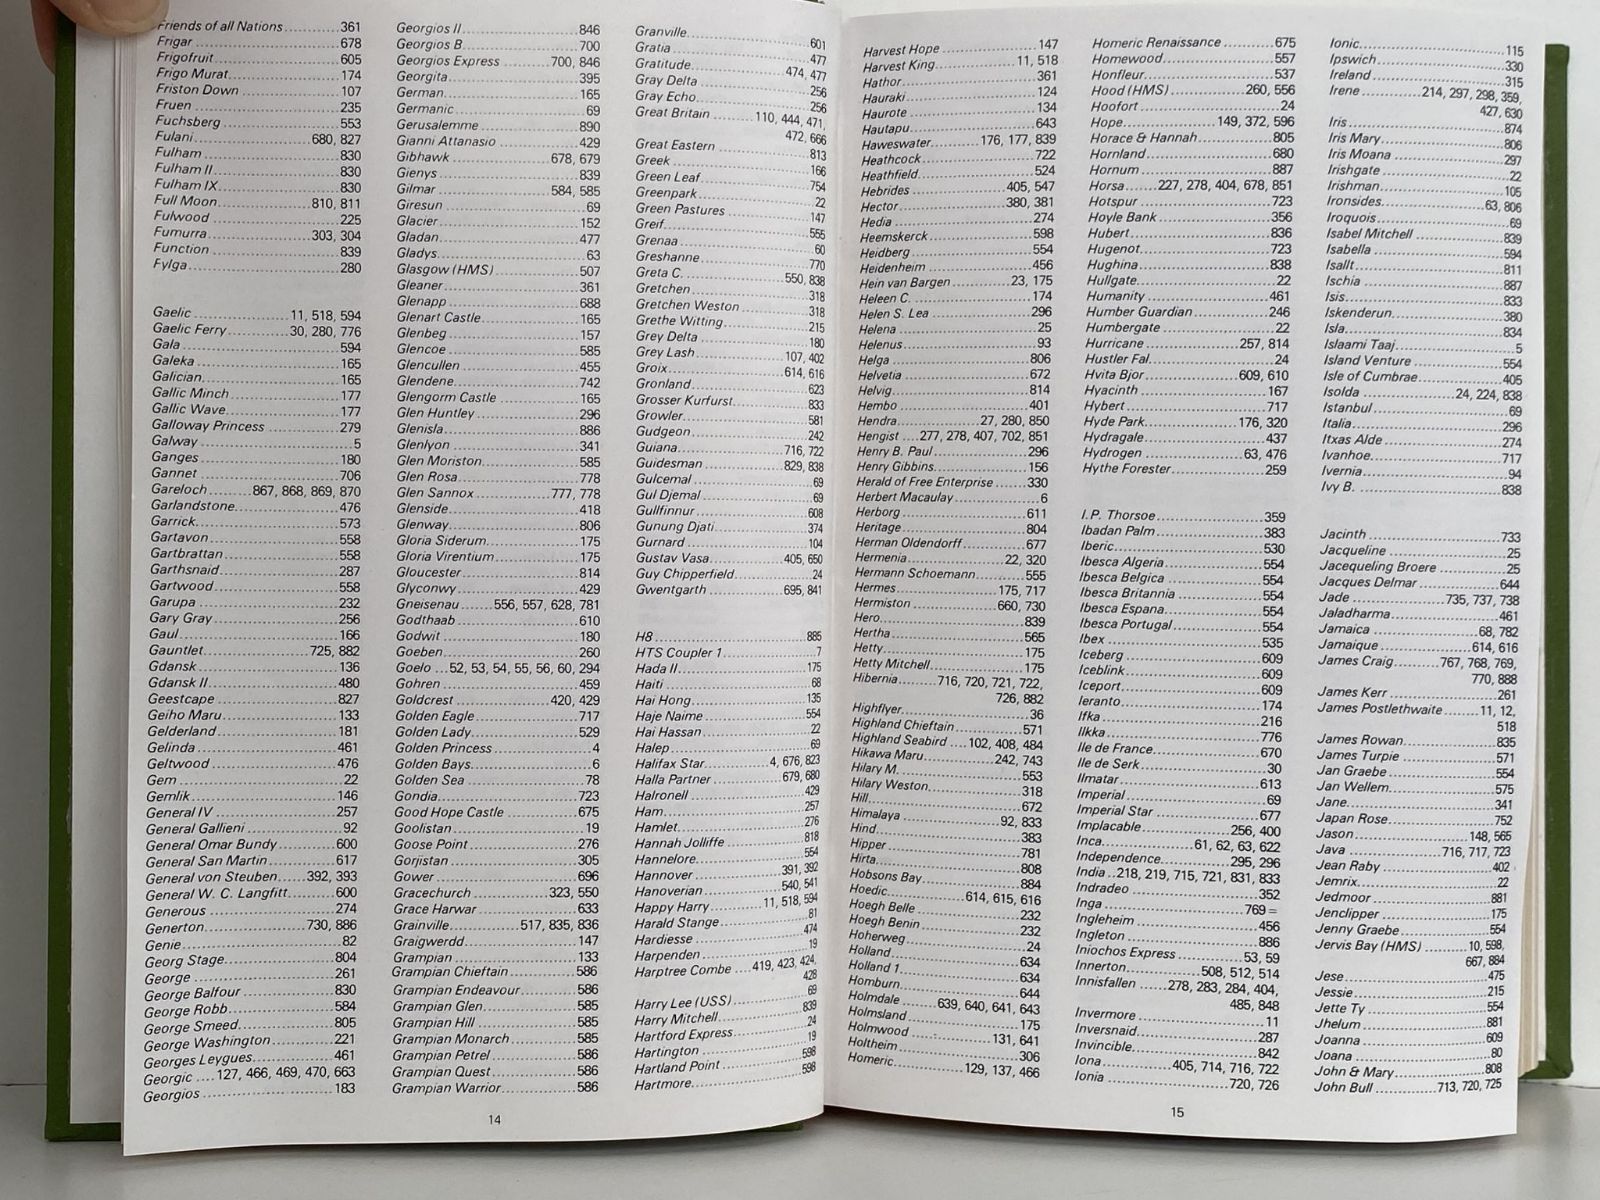 Friends of all Nations 361
Frigar 678
Frigofruit 605
Frigo Murat 174
Friston Down 107
Fruen 235
Fuchsberg 553
Fulani 680, 827
Fulham 830
Fulham II 830
Fulham IX 830
Full Moon 810, 811
Fulwood 225
Fumurra 303, 304
Function 839
Fylga 280
Gaelic 11, 518, 594
Gaelic Ferry 30, 280, 776
Gala 594
Galeka 165
Galician 165
Gallic Minch 177
Gallic Wave 177
Galloway Princess 279
Galway 5
Ganges 180
Gannet 706
Gareloch 867, 868, 869, 870
Garlandstone 476
Garrick 573
Gartavon 558
Gartbrattan 558
Garthsnaid 287
Gartwood 558
Garupa 232
Gary Gray 256
Gaul 166
Gauntlet 725, 882
Gdansk 136
Gdansk II 480
Geestcape 827
Geiho Maru 133
Gelderland 181
Gelinda 461
Geltwood 476
Gem 22
Gemlik 146
General IV 257
General Gallieni 92
General Omar Bundy 600
General San Martin 617
General von Steuben 392, 393
General W. C. Langfitt 600
Generous 274
Generton 730, 886
Genie 82
Georg Stage 804
George 261
George Balfour 830
George Robb 584
George Smeed 805
George Washington 221
Georges Leygues 461
Georgic 127, 466, 469, 470, 663
Georgios 183
Georgios II 846
Georgios B 700
Georgios Express 700, 846
Georgita 395
German 165
Germanic 69
Gerusalemme 890
Gianni Attanasio 429
Gibhawk 678, 679
Gienys 839
Gilmar 584, 585
Giresun 69
Glacier 152
Gladan 477
Gladys 63
Glasgow (HMS) 507
Gleaner 361
Glenapp 688
Glenart Castle 165
Glenbeg 157
Glencoe 585
Glencullen 455
Glendene 742
Glengorm Castle 165
Glen Huntley 296
Glenisla 886
Glenlyon 341
Glen Moriston 585
Glen Rosa 778
Glen Sannox 777, 778
Glenside 418
Glenway 806
Gloria Siderum 175
Gloria Virentium 175
Gloucester 814
Glyconwy 429
Gneisenau 556, 557, 628, 781
Godthaab 610
Godwit 180
Goeben 260
Goelo 52, 53, 54, 55, 56, 60, 294
Gohren 459
Goldcrest 420, 429
Golden Eagle 717
Golden Lady 529
Golden Princess 4
Golden Bays 6
Golden Sea 78
Gondia 723
Good Hope Castle 675
Goolistan 19
Goose Point 276
Gorjistan 305
Gower 696
Gracechurch 323, 550
Grace Harwar 633
Grainville 517, 835, 836
Graigwerdd 147
Grampian 133
Grampian Chieftain 586
Grampian Endeavour 586
Grampian Glen 585
Grampian Hill 585
Grampian Monarch 585
Grampian Petrel 586
Grampian Quest 586
Grampian Warrior 586
Granville 601
Gratia 477
Gratitude 474, 477
Gray Delta 256
Gray Echo 256
Great Britain 110, 444, 471,
472, 666
Great Eastern 813
Greek 166
Green Leaf 754
Greenpark 22
Green Pastures 147
Greif 555
Grenaa 60
Greshanne 770
Greta C. 550, 838
Gretchen 318
Gretchen Weston 318
Grethe Witting 215
Grey Delta 180
Grey Lash 107, 402
Groix 614, 616
Gronland 623
Grosser Kurfurst 833
Growler 581
Gudgeon 242
Guiana 716, 722
Guidesman 829, 838
Gulcemal 69
Gul Djemal 69
Gullfinnur 608
Gunung Djati 374
Gurnard 104
Gustav Vasa 405, 650
Guy Chipperfield 24
Gwentgarth 695, 841
H8 885
HTS Coupler 1 7
Hada II 175
Haiti 68
Hai Hong 135
Haje Naime 554
Hai Hassan 22
Halep 69
Halifax Star 4, 676, 823
Halla Partner 679, 680
Halronell 429
Ham 257
Hamlet 276
Hannah Jolliffe 818
Hannelore 554
Hannover 391, 392
Hanoverian 540, 541
Happy Harry 11, 518, 594
Harald Stange 81
Hardiesse 474
Harpenden 19
Harptree Combe 419, 423, 424,
428
Harry Lee (USS) 69
Harry Mitchell 839
Hartford Express 24
Hartington 19
Hartland Point 598
Hartmore 598
14
Harvest Hope 147
Harvest King 11, 518
Hathor 361
Hauraki 124
Haurote 134
Hautapu 643
Haweswater 176, 177, 839
Heathcock 722
Heathfield 524
Hebrides 405, 547
Hector 380, 381
Hedia 274
Heemskerck 598
Heidberg 554
Heidenheim 456
Hein van Bargen 23, 175
Heleen C. 174
Helen S. Lea 296
Helena 25
Helenus 93
Helga 806
Helvetia 672
Helvig 814
Hembo 401
Hendra 27, 280, 850
Hengist 277, 278, 407, 702, 851
Henry B. Paul 296
Henry Gibbins 156
Herald of Free Enterprise 330
Herbert Macaulay 6
Herborg 611
Heritage 804
Herman Oldendorff 677
Hermenia 22, 320
Hermann Schoemann 555
Hermes 175, 717
Hermiston 660, 730
Hero 839
Hertha 565
Hetty 175
Hetty Mitchell 175
Hibernia 716, 720, 721, 722,
726, 882
Highflyer 36
Highland Chieftain 571
Highland Seabird 102, 408, 484
Hikawa Maru 242, 743
Hilary M. 553
Hilary Weston 318
Hill 672
Himalaya 92, 833
Hind 383
Hipper 781
Hirta 808
Hobsons Bay 884
Hoedic 614, 615, 616
Hoegh Belle 232
Hoegh Benin 232
Hoherweg 24
Holland 634
Holland 1 634
Homburn 644
Holmdale 639, 640, 641, 643
Holmsland 175
Holmwood 131, 641
Holtheim 306
Homeric 129, 137, 466
Homeric Renaissance 675
Homewood 557
Honfleur 537
Hood (HMS) 260, 556
Hoofort 24
Hope 149, 372, 596
Horace & Hannah 805
Hornland 680
Hornum 887
Horsa 227, 278, 404, 678, 851
Hotspur 723
Hoyle Bank 356
Hubert 836
Hugenot 723
Hughina 838
Hullgate 22
Humanity 461
Humber Guardian 246
Humbergate 22
Hurricane 257, 814
Hustler Fal 24
Hvita Bjor 609, 610
Hyacinth 167
Hybert 717
Hyde Park 176, 320
Hydragale 437
Hydrogen 63, 476
Hythe Forester 259
I.P. Thorsoe 359
Ibadan Palm 383
Iberic 530
Ibesca Algeria 554
Ibesca Belgica 554
Ibesca Britannia 554
Ibesca Espana 554
Ibesca Portugal 554
Ibex 535
Iceberg 609
Iceblink 609
Iceport 609
Ieranto 174
Ifka 216
Ilkka 776
Ile de France 670
Ile de Serk 30
Ilmatar 613
Imperial 69
Imperial Star 677
Implacable 256, 400
Inca 61, 62, 63, 622
Independence 295, 296
India 218, 219, 715, 721, 831, 833
Indradeo 352
Inga 769 =
Ingleheim 456
Ingleton 886
Iniochos Express 53, 59
Innerton 508, 512, 514
Innisfallen 278, 283, 284, 404,
485, 848
Invermore 11
Inversnaid 287
Invincible 842
Iona 405, 714, 716, 722
Ionia 720, 726
Ionic 115
Ipswich 330
Ireland 315
Irene 214, 297, 298, 359,
427, 630
Iris 874
Iris Mary 806
Iris Moana 297
Irishgate 22
Irishman 105
Ironsides 63, 806
Iroquois 69
Isabel Mitchell 839
Isabella 594
Isallt 811
Ischia 887
Isis 833
Iskenderun 380
Isla 834
Islaami Taaj 5
Island Venture 554
Isle of Cumbrae 405
Isolda 24, 224, 838
Istanbul 69
Italia 296
Itxas Alde 274
Ivanhoe 717
Ivernia 94
Ivy B. 838
Jacinth 733
Jacqueline 25
Jacequeling Broere 25
Jacques Delmar 644
Jade 735, 737, 738
Jaladharma 461
Jamaica 68, 782
Jamaique 614, 616
James Craig 767, 768, 769,
770, 888
James Kerr 261
James Postlethwaite 11, 12,
518
James Rowan 835
James Turpie 571
Jan Graebe 554
Jan Wellem 575
Jane 341
Japan Rose 752
Jason 148, 565
Java 716, 717, 723
Jean Raby 402
Jemrix 22
Jedmoor 881
Jenclipper 175
Jenny Graebe 554
Jervis Bay (HMS) 10, 598,
667, 884
Jese 475
Jessie 215
Jette Ty 554
Jhelum 881
Joanna 609
Joana 80
John & Mary 808
John Bull 713, 720, 725
15